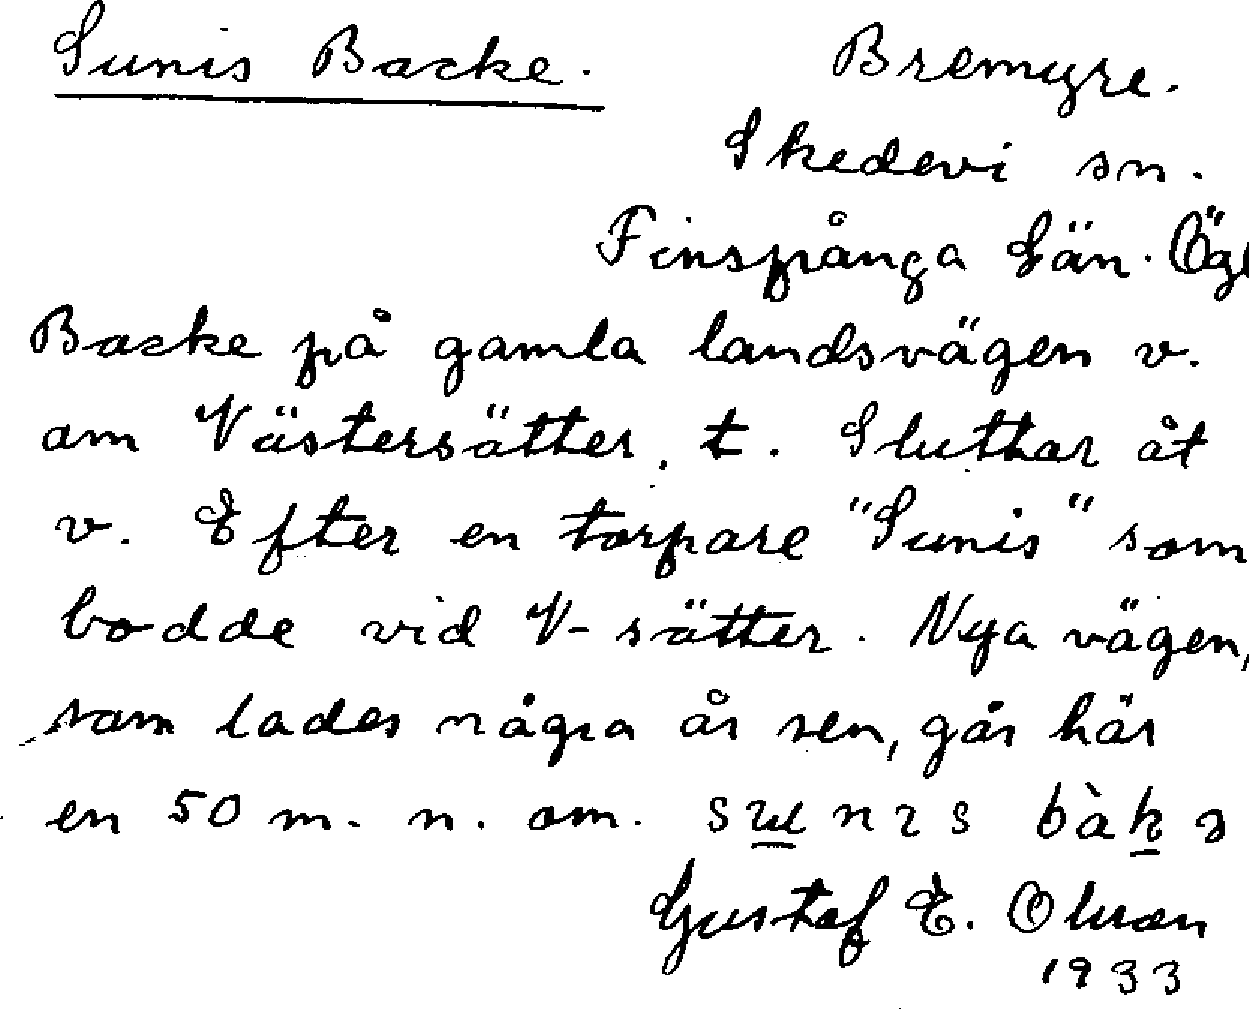 Sunis Backe. Bremyre.
Skedevi sn.
Finspånga Län. Ög
Backe på gamla landsvägen v.
om Västersätter, t. Sluttar åt
v. Efter en torpare "Sunis" som
bodde vid V-sätter. Nya vägen,
som lades några år sen, går här
en 50 m. n. om. sɯnɩs bàkə
Gustaf E. Olsson
1933